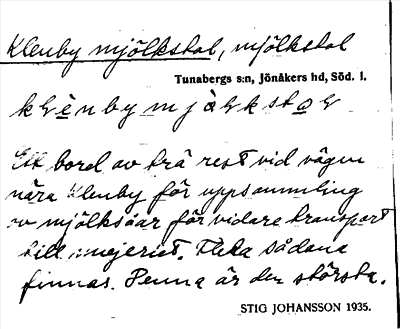 Klenby mjölkstal, mjölkstal
Tunabergs s:n, Jönåkers hd, Söd. l.
Ett bord av trä rest vid vägen
nära Klenby för uppsammling
av mjölksåar för vidare transport
till mejeriet. Fleka sådana
finnas. Denna är den största.
STIG JOHANSSON 1935.